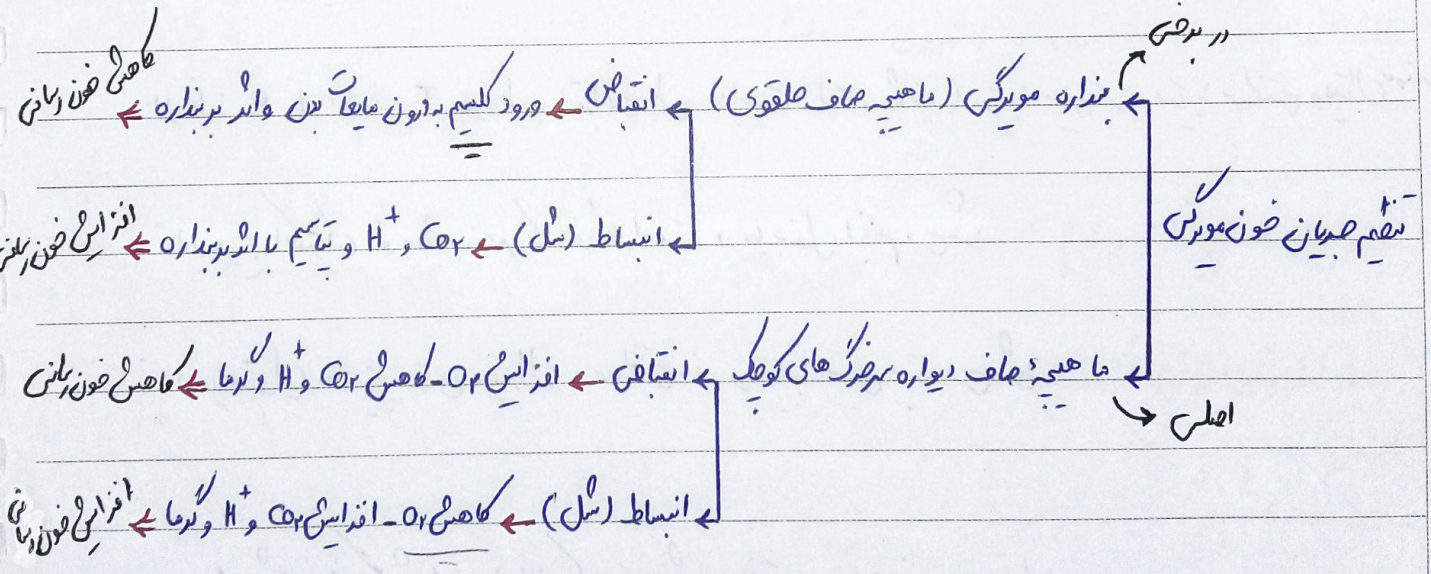 در برخی
بنداره مویرگی (ماهیچه صاف حلقوی) ← انقباض ← ورود کلسیم به درون مایعات بدن و اثر بر بنداره ⇐ کاهش خون رسانی
← انبساط (شل) ← CO₂ و H⁺ و پتاسیم با اثر بر بنداره ⇐ افزایش خون رسانی
تنظیم جریان خون مویرگی
ماهیچهٔ صاف دیواره سرخرگ های کوچک ← انقباض ← افزایش O₂ - کاهش CO₂ و H⁺ و گرما ⇐ کاهش خون رسانی
اصلی
← انبساط (شل) ← کاهش O₂ - افزایش CO₂ و H⁺ و گرما ⇐ افزایش خون رسانی